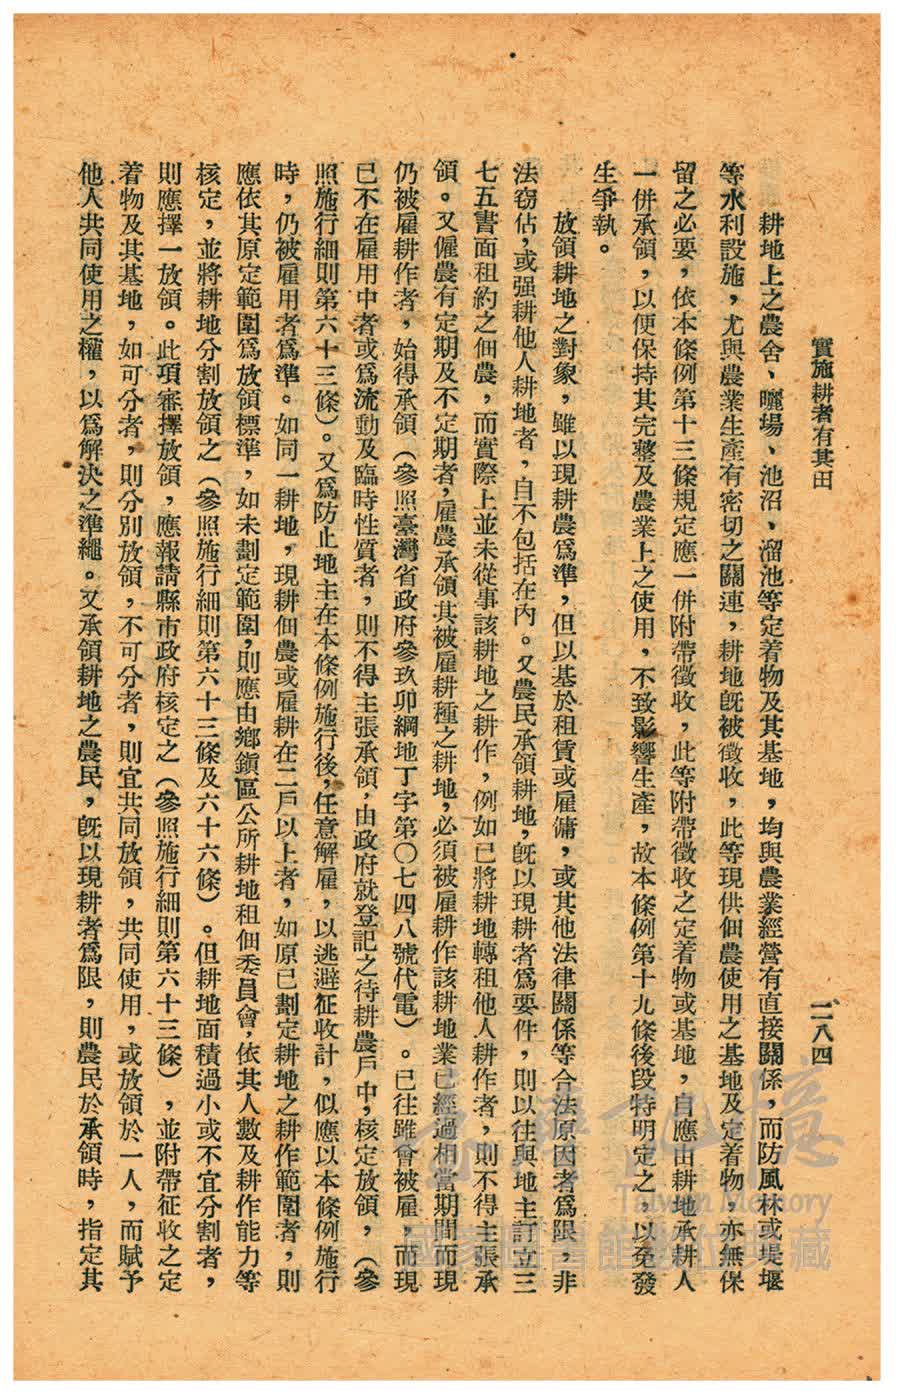 實施耕者有其田
二八四
耕地上之農舍、曬場、池沼、溜池等定着物及其基地，均與農業經營有直接關係，而防風林或堤堰
等水利設施，尤與農業生產有密切之關連，耕地旣被徵收，此等現供佃農使用之基地及定着物，亦無保
留之必要，依本條例第十三條規定應一併附帶徵收，此等附帶徵收之定着物或基地，自應由耕地承耕人
一併承領，以便保持其完整及農業上之使用，不致影響生產，故本條例第十九條後段特明定之，以免發
生爭執。
放領耕地之對象，雖以現耕農爲準，但以基於租賃或雇傭，或其他法律關係等合法原因者爲限，非
法竊佔，或强耕他人耕地者，自不包括在內。又農民承領耕地，旣以現耕者爲要件，則以往與地主訂立三
七五書面租約之佃農，而實際上並未從事該耕地之耕作，例如已將耕地轉租他人耕作者，則不得主張承
領。又僱農有定期及不定期者，雇農承領其被雇耕種之耕地，必須被雇耕作該耕地業已經過相當期間而現
仍被雇耕作者，始得承領（參照臺灣省政府參玖卯綱地丁字第〇七四八號代電）。已往雖曾被雇，而現
已不在雇用中者或爲流動及臨時性質者，則不得主張承領，由政府就登記之待耕農戶中，核定放領，（參
照施行細則第六十三條）。又爲防止地主在本條例施行後，任意解雇，以逃避征收計，似應以本條例施行
時，仍被雇用者爲準。如同一耕地，現耕佃農或雇耕在二戶以上者，如原已劃定耕地之耕作範圍者，則
應依其原定範圍爲放領標準，如未劃定範圍，則應由鄉鎭區公所耕地租佃委員會，依其人數及耕作能力等
核定，並將耕地分割放領之（參照施行細則第六十三條及六十六條）。但耕地面積過小或不宜分割者，
則應擇一放領。此項審擇放領，應報請縣市政府核定之（參照施行細則第六十三條），並附帶征收之定
着物及其基地，如可分者，則分別放領，不可分者，則宜共同放領，共同使用，或放領於一人，而賦予
他人共同使用之權，以爲解決之準繩。又承領耕地之農民，旣以現耕者爲限，則農民於承領時，指定其
臺灣記憶
Taiwan Memory
國家圖書館數位典藏